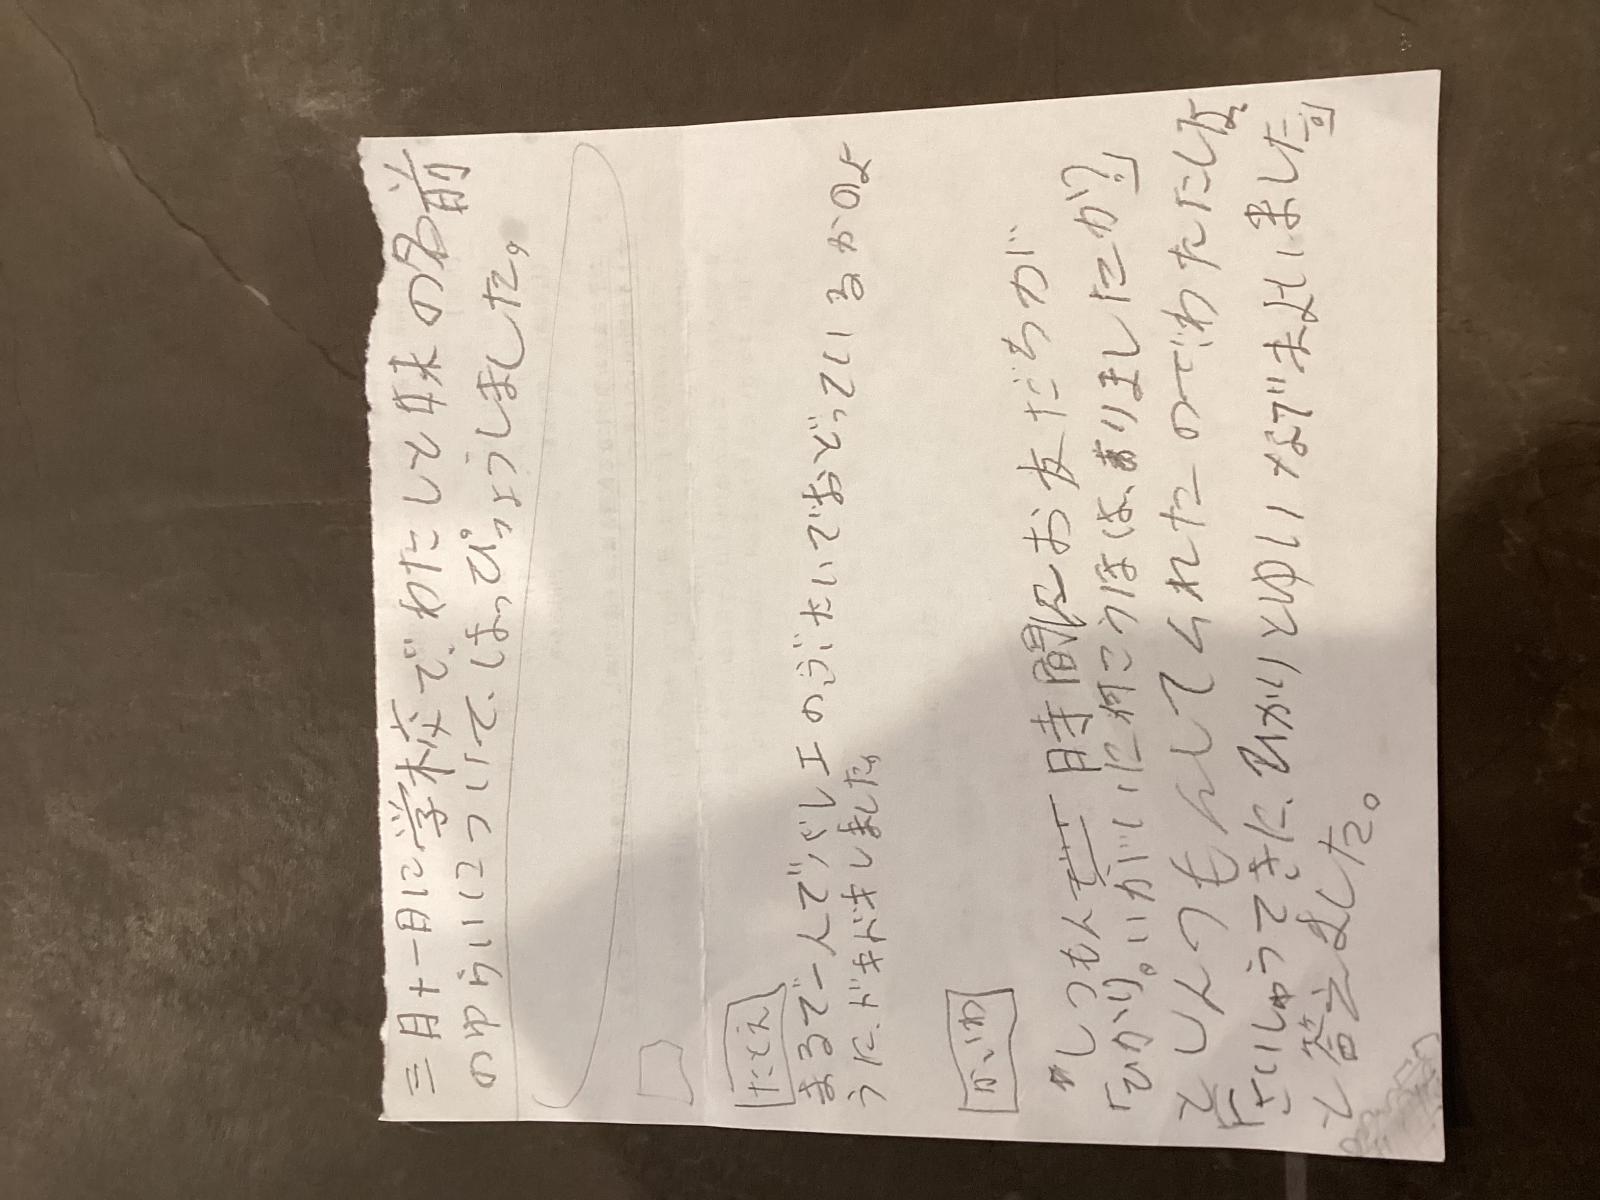 三月十一日に学校でわたしと妹の名前
のゆらいについて、はっぴょうしました。
たとえ
まるで一人でバレエのぶたいでおどっているかのよ
うに、ドキドキしました。
かいわ
しつもん 時間にお友だちが
「ひかり。いがいに何こうほは、ありましたか?」
としつもんしてくれたのでわたしは
「さいしゅうてきに、ひかりとゆいなでまよいました」
と答えました。